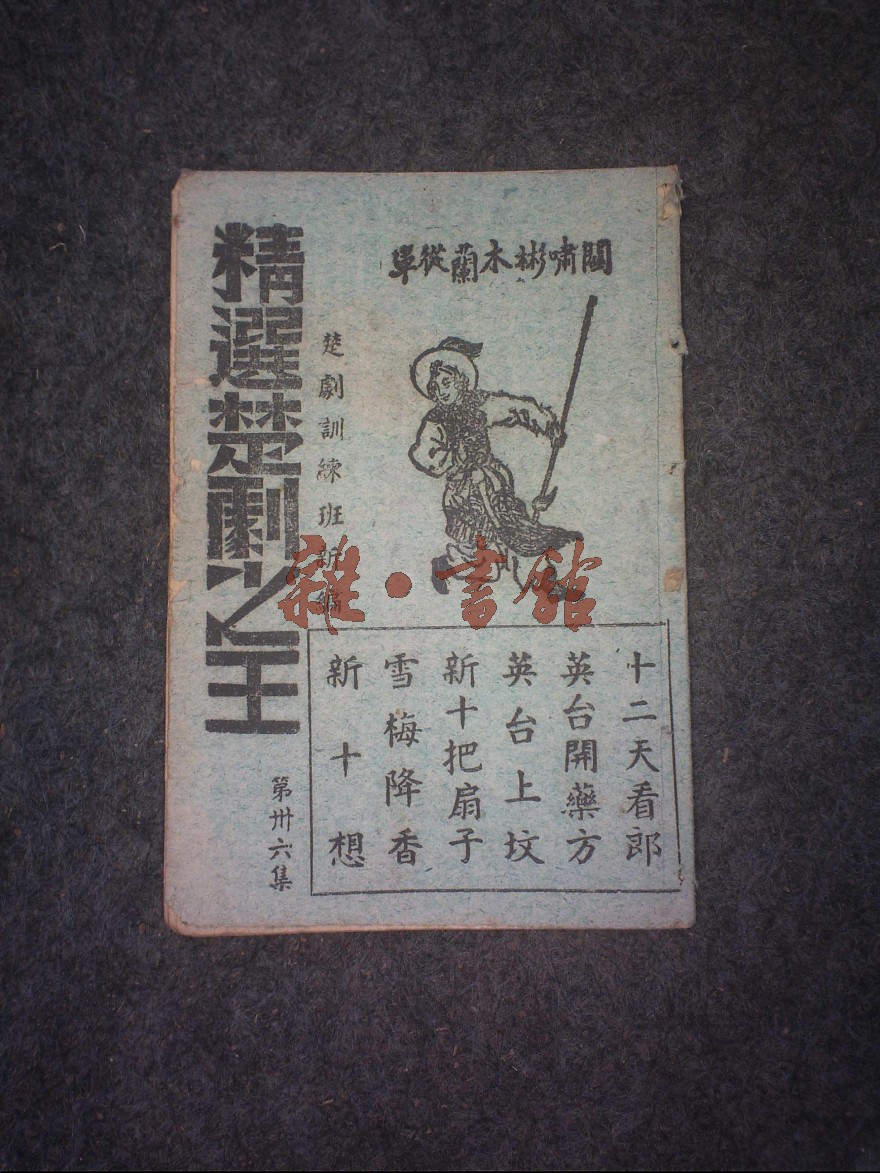 關嘯彬木蘭從軍
精選楚劇之王
楚劇訓練班新編
第卅六集
十二天看郎
英台開藥方
英台上坟
新十把扇子
雪梅降香
新十想
雜·書館